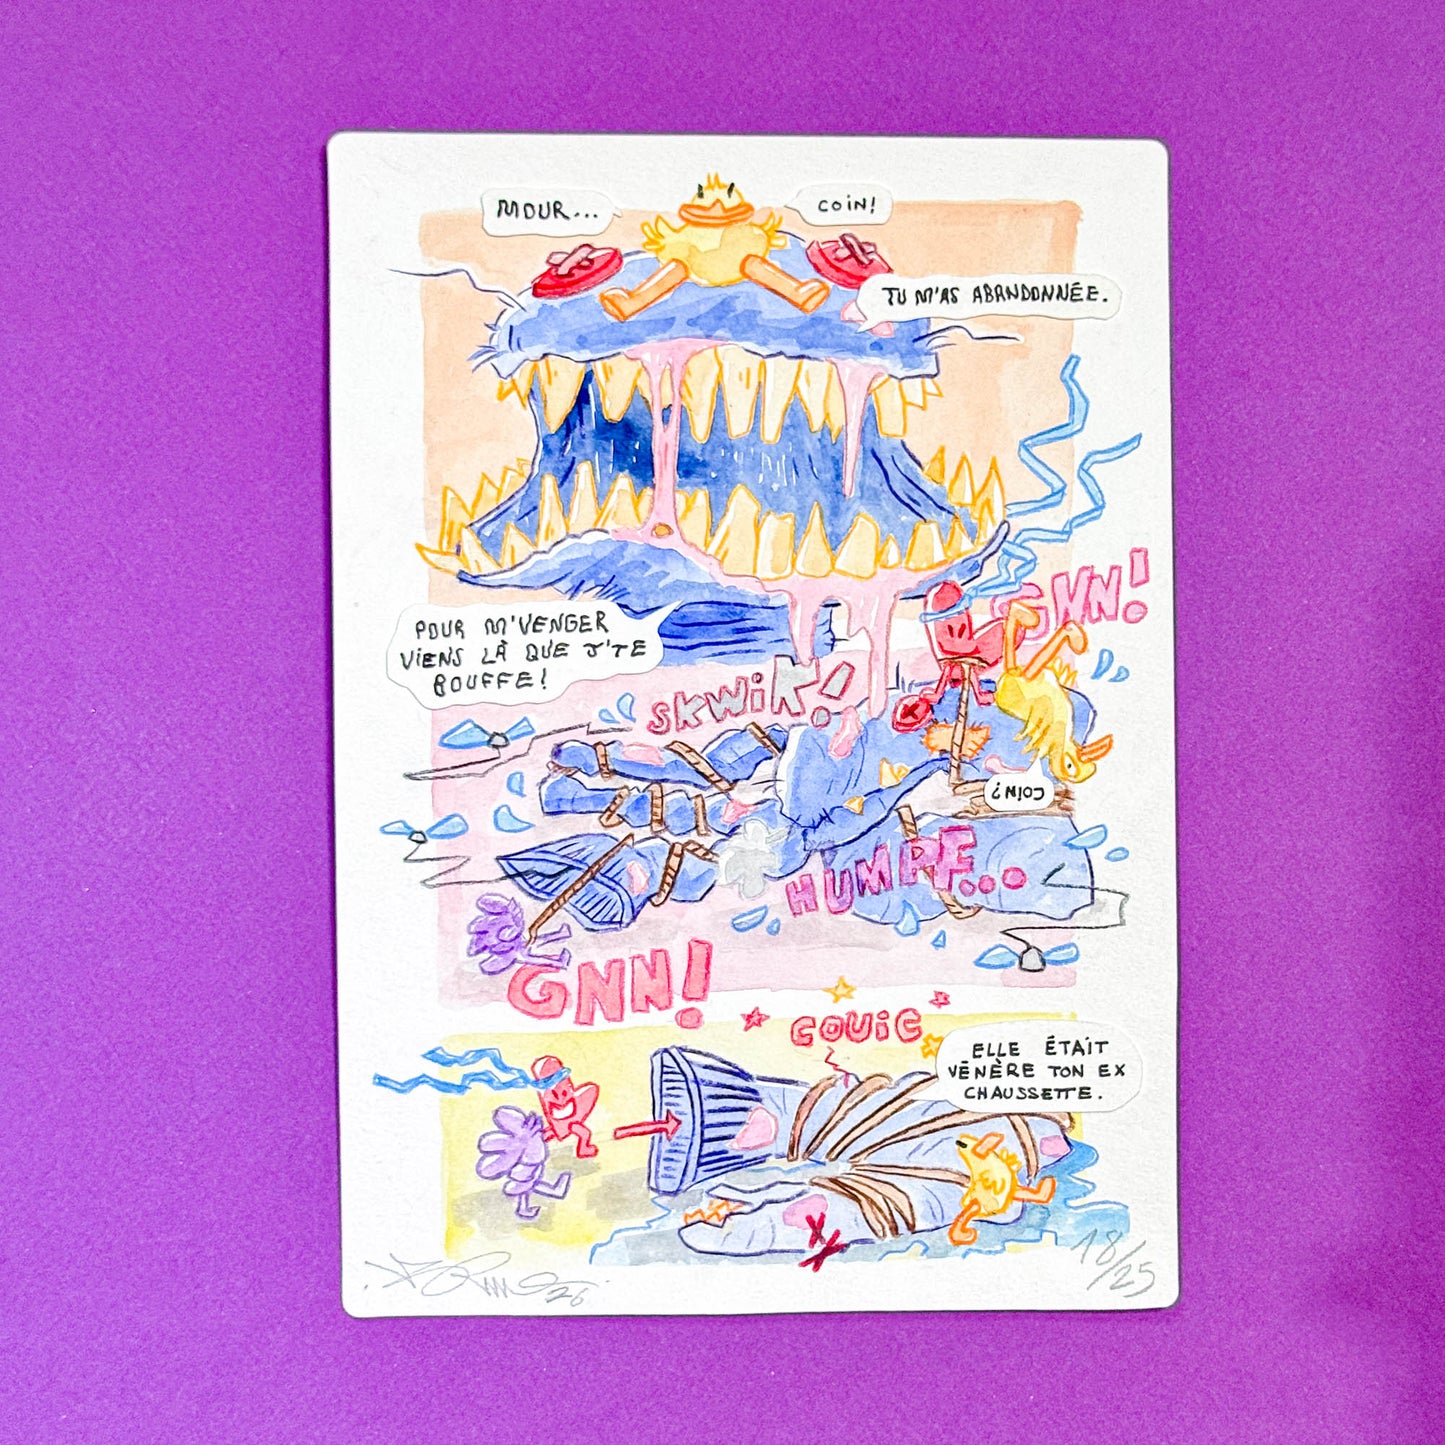 MOUR...
COIN!
TU M'AS ABANDONNÉE.
GNN!
POUR M'VENGER
VIENS LÀ QUE J'TE
BOUFFE!
SKWIK!
COIN?
HUMPF...
GNN!
COUIC
ELLE ÉTAIT
VÉNÈRE TON EX
CHAUSSETTE.
26
18/25